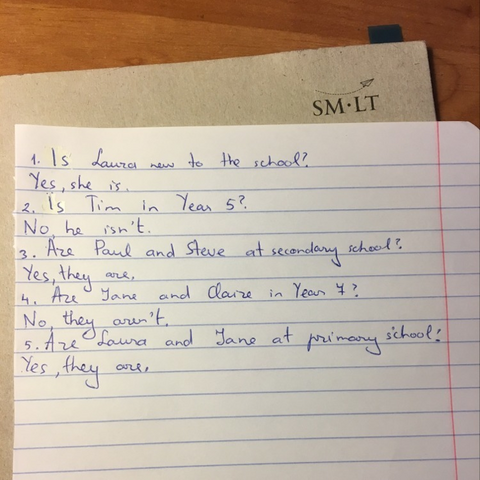 SM·LT
1. Is Laura new to the school?
Yes, she is.
2. Is Tim in Year 5?
No, he isn't.
3. Are Paul and Steve at secondary school?
Yes, they are.
4. Are Jane and Claire in Year 7?
No, they aren't.
5. Are Laura and Jane at primary school?
Yes, they are.